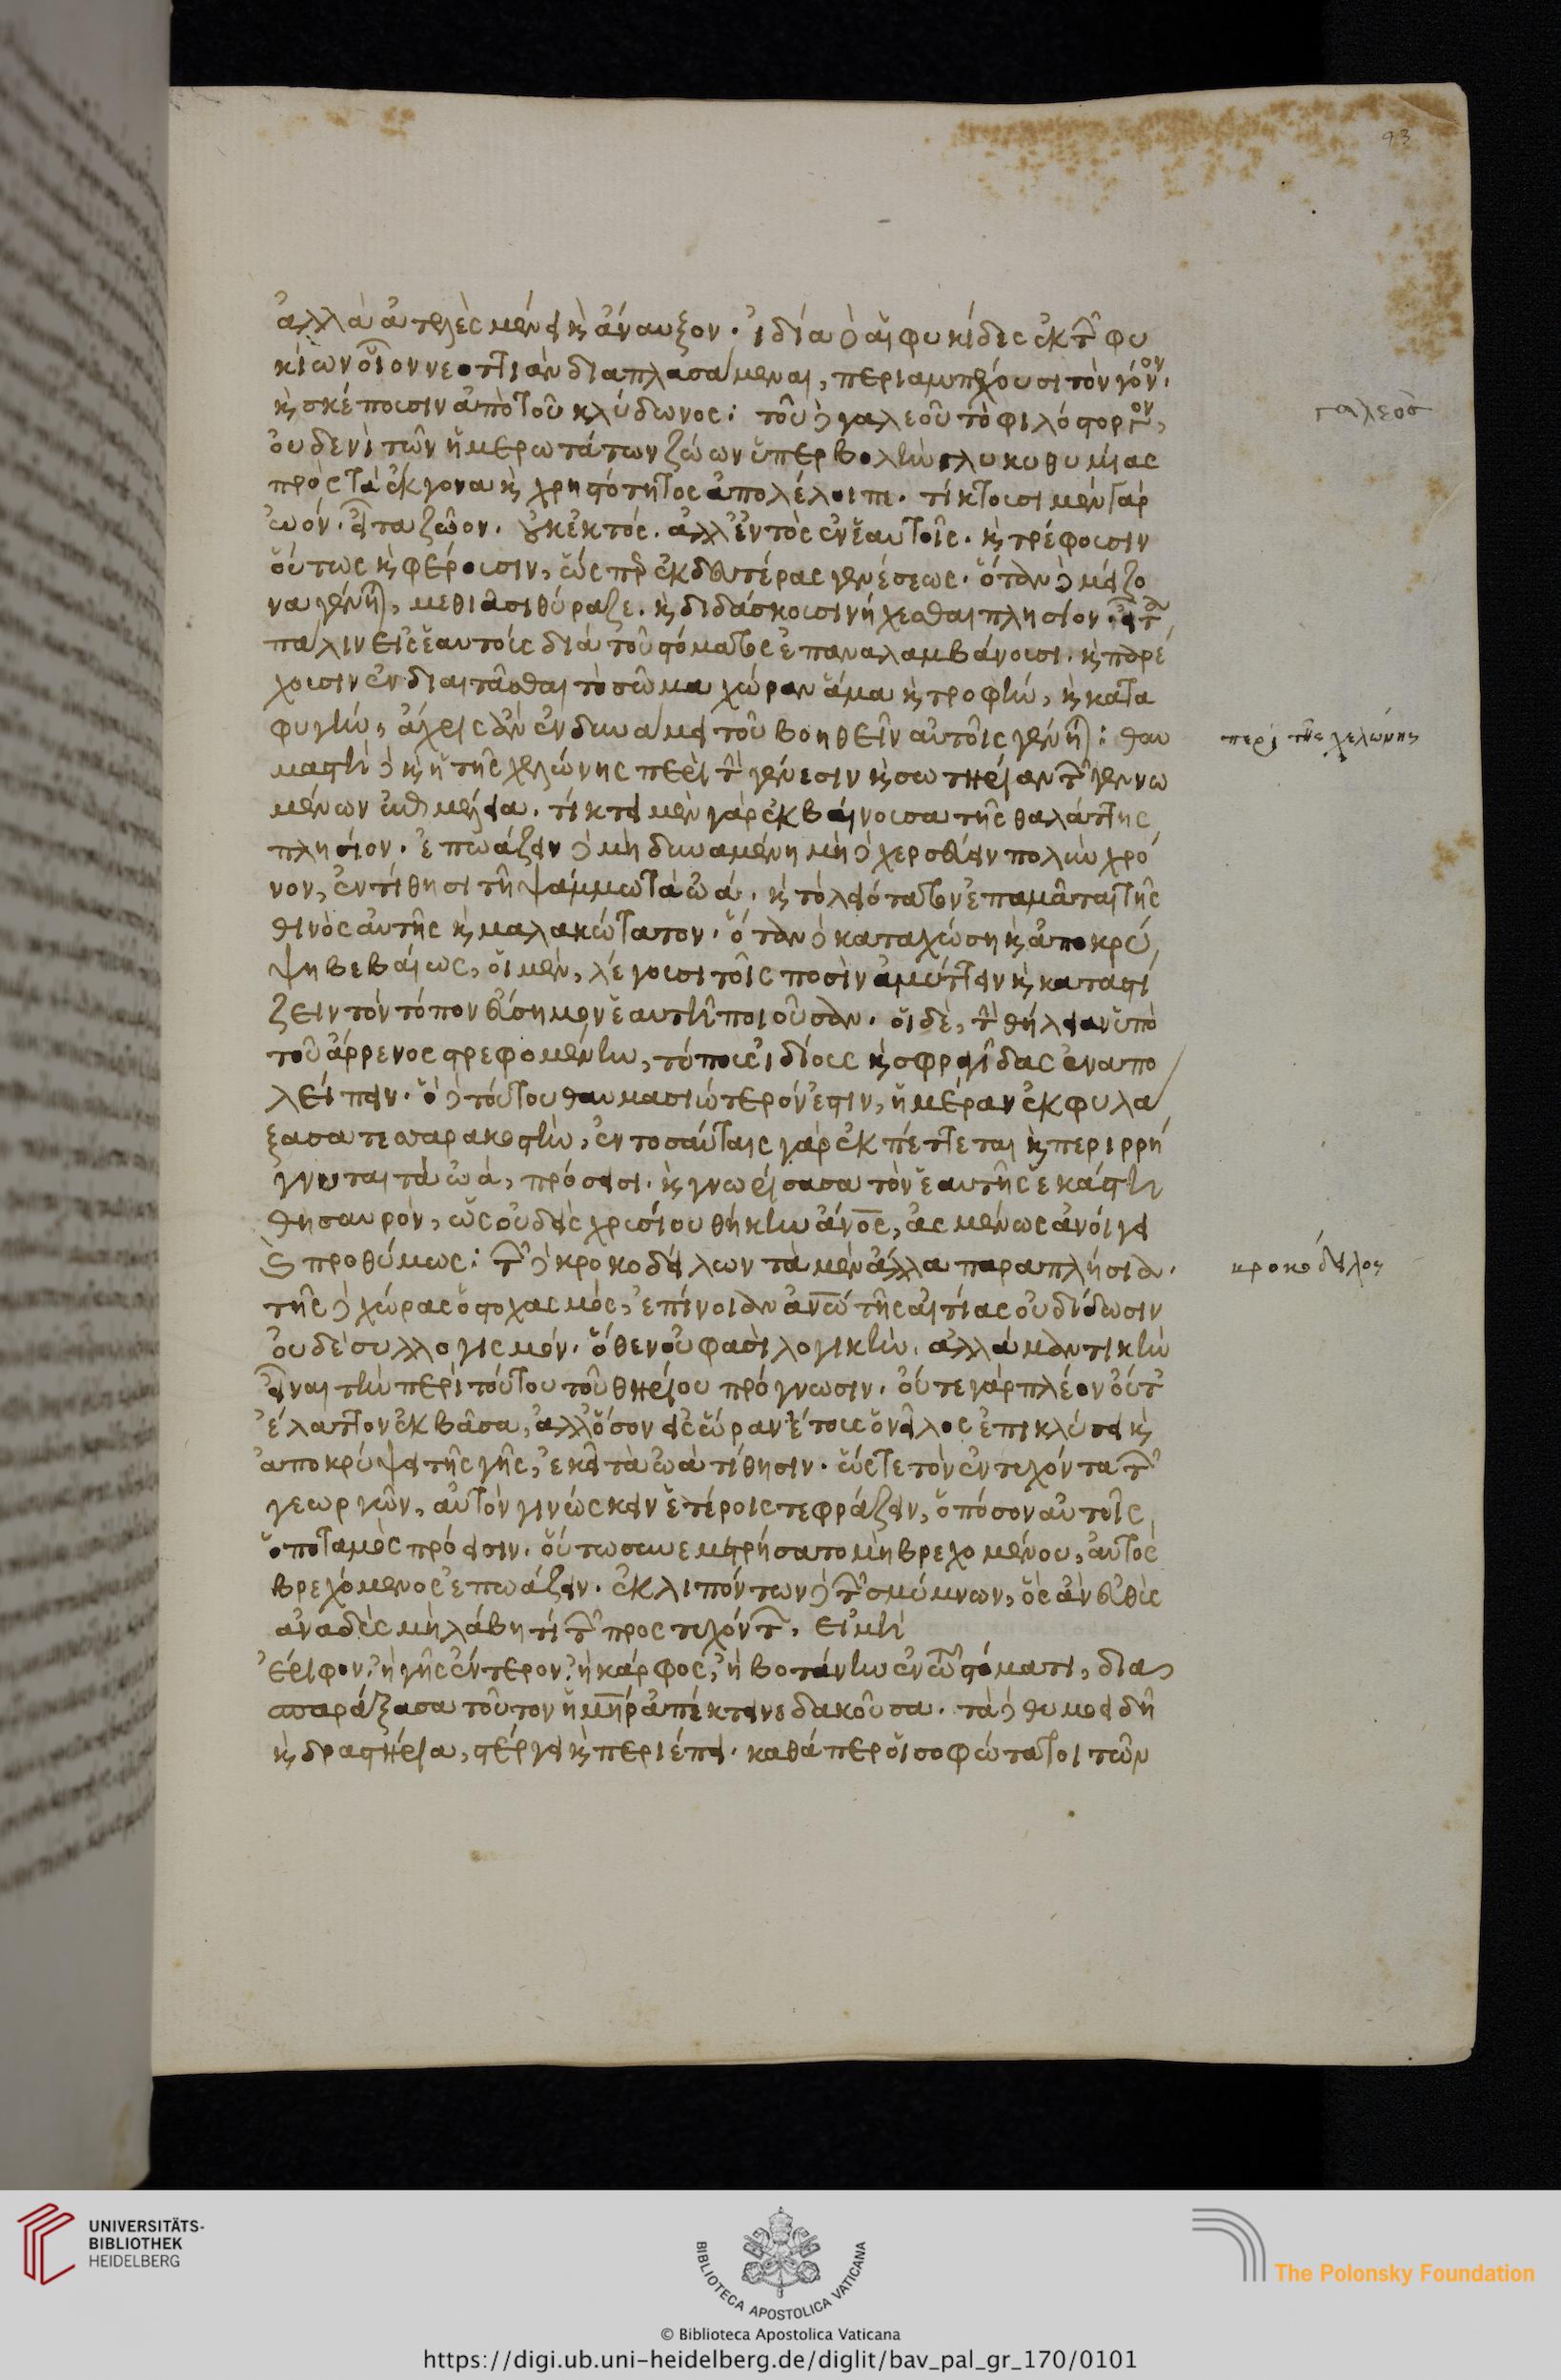 93
ἀλλὰ ἀτελὲς μένει ϗ ἄναυξον. ἰδία δὲ αἱ φυκίδες ἐκ τῶν φυ
κίων οἷον νεοττιὰν διαπλασάμεναι, περιαμπέχουσι τὸν γόνον.
ϗ σκέπουσιν ἀπὸ τοῦ κλύδωνος: τοῦ δὲ γαλεοῦ τὸ φιλόστοργον,
οὐδενὶ τῶν ἡμερωτάτων ζώων ὑπερβολὴν γλυκυθυμίας
πρὸς τὰ ἔκγονα ϗ χρηστότητος ἀπολέλοιπε. τίκτουσι μὲν γὰρ
ὠόν. εἶτα ζῶον. οὐκ ἐκτός. ἀλλ' ἐντὸς ἐν ἑαυτοῖς. ϗ τρέφουσιν
οὕτως ϗ φέρουσιν, ὥσπερ ἐκ δευτέρας γενέσεως. ὅταν δὲ μείζο
να γένηται, μεθιᾶσι θύραζε. ϗ διδάσκουσι νήχεσθαι πλησίον. εἶτα
πάλιν εἰς ἑαυτοὺς διὰ τοῦ στόματος ἐπαναλαμβάνουσι. ϗ παρέ
χουσιν ἐνδιαιτᾶσθαι τὸ σῶμα χώραν ἅμα ϗ τροφὴν, ϗ κατα
φυγὴν, ἄχρις ἂν ἐν δυνάμει τοῦ βοηθεῖν αὐτοῖς γένηται: θαυ
μαστὴ δὲ ϗ ἡ τῆς χελώνης περὶ τὴν γένεσιν ϗ σωτηρίαν τῶν γεννω
μένων ἐπιμέλεια. τίκτει μὲν γὰρ ἐκβαίνουσα τῆς θαλάττης
πλησίον. ἐπωάζειν δὲ μὴ δυναμένη μὴ δὲ χερσεύειν πολὺν χρό
νον, ἐντίθησι τῆ ψάμμω τὰ ὠά. ϗ τὸ λειότατον ἐπαμᾶται τῆς
θινὸς αὐτῆς ϗ μαλακώτατον. ὅταν δὲ καταχώση ϗ ἀποκρύ
ψη βεβαίως, οἱ μὲν, λέγουσι τοῖς ποσὶν ἀμύττειν ϗ καταστί
ζειν τὸν τόπον εὔσημον ἑαυτῆ ποιοῦσαν. οἱ δὲ, τὴν θήλειαν ὑπὸ
τοῦ ἄρρενος στρεφομένην, τύπους ἰδίους ϗ σφραγῖδας ἐναπο
λείπειν. ὃ δὲ τούτου θαυμασιώτερόν ἐστιν, ἡμέραν ἐκφυλά
ξασα τεσσαρακοστὴν, ἐν τοσαύταις γὰρ ἐκπέττεται ϗ περιρρή
γνυται τὰ ὠά, πρόσεισι. ϗ γνωρίσασα τὸν ἑαυτῆς ἑκάστη
θησαυρὸν, ὡς οὐδεὶς χρυσίου θήκην ἄνος, ἀσμένως ἀνοίγει
ϗ προθύμως: τῶν δὲ κροκοδείλων τὰ μὲν ἄλλα παραπλήσια.
τῆς δὲ χώρας ὁ στοχασμός, ἐπίνοιαν ἀνω τῆς αἰτίας οὐ δίδωσιν
οὐδὲ συλλογισμόν. ὅθεν οὔ φασὶ λογικὴν. ἀλλὰ μαντικὴν
εἶναι τὴν περὶ τούτου τοῦ θηρίου πρόγνωσιν. οὔτε γὰρ πλέον οὔτ
ἔλαττον ἐκβᾶσα, ἀλλ' ὅσον εἰς ὥραν ἔτους ὁ νεῖλος ἐπικλύσει ϗ
ἀποκρύψει τῆς γῆς, ἐκεῖ τὰ ὠὰ τίθησιν. ὥστε τὸν ἐντυχόντα τῶν
γεωργῶν, αὐτὸν γινώσκειν ἑτέροις τε φράζειν, ὁπόσον αὐτοῖς
ὁ ποταμὸς πρόεισιν. οὕτω συνεμετρήσατο μὴ βρεχομένου, αὐτὸς
βρεχόμενος ἐπωάζειν. ἐκλιπόντων δὲ τῶν σκύμνων, ὃς ἂν εὐθὺς
ἀναδὺς μὴ λάβη τί τῶν προστυχόντων, ει μὴ
ἔριφον, ἢ γῆς ἔντερον, ἢ κάρφος, ἢ βοτάνην ἐν τῶ στόματι, δια
σπαράξασα τοῦτον ἡ μηρ ἀπέκτεινε δακοῦσα. τὰ δὲ θυμοειδῆ
ϗ δραστήρια, στέργει ϗ περιέπει. καθάπερ οἱ σοφώτατοι τῶν
γαλεὸσ
περὶ τῆς χελώνης
κροκόδειλος
UNIVERSITÄTS-
BIBLIOTHEK
HEIDELBERG
BIBLIOTECA APOSTOLICA VATICANA
The Polonsky Foundation
© Biblioteca Apostolica Vaticana
https://digi.ub.uni-heidelberg.de/diglit/bav_pal_gr_170/0101